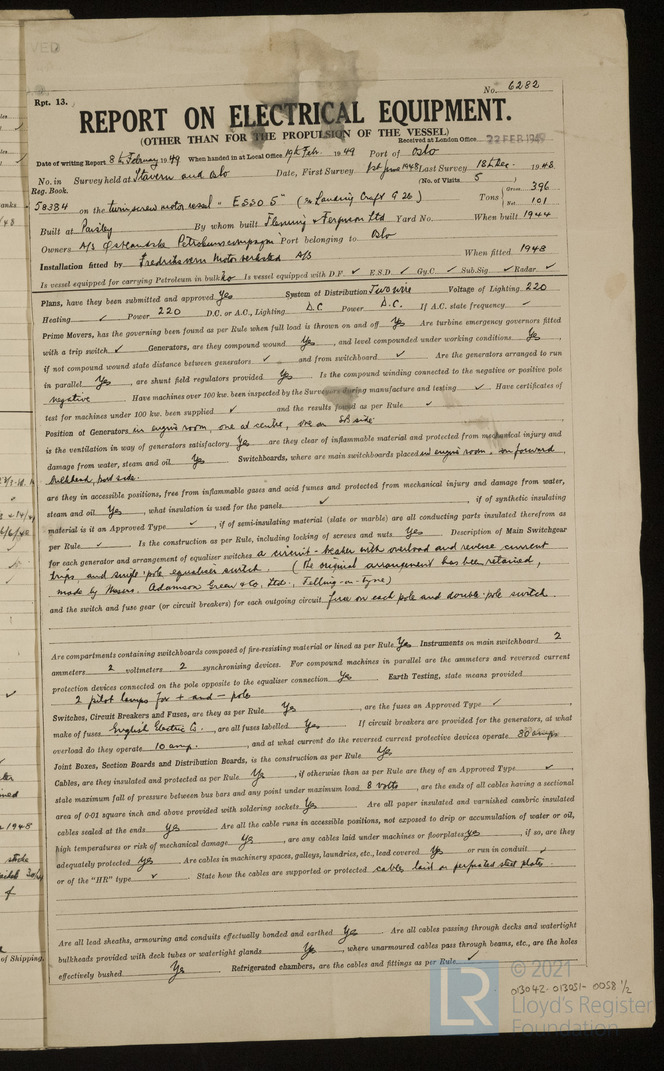 No. 6282
Rpt. 13.
REPORT ON ELECTRICAL EQUIPMENT.
(OTHER THAN FOR THE PROPULSION OF THE VESSEL)
Received at London Office 22 FEB 1949
Date of writing Report 8th February 1949 When handed in at Local Office 19th Feb. 1949 Port of Oslo
No. in Reg. Book. Survey held at Stavern and Oslo Date, First Survey 1st June 1948 Last Survey 18th Dec. 1948
(No. of Visits 5)
58384 on the twin screw motor vessel "ESSO 5" (Ex Landing Craft G 26) Tons Gross 396 Net 101
Built at Paisley By whom built Fleming & Ferguson Ltd Yard No. When built 1944
Owners A/S Østlandske Petroleumscompagni Port belonging to Oslo
Installation fitted by Fredriksvern Motorverksted A/S When fitted 1948
Is vessel equipped for carrying Petroleum in bulk No Is vessel equipped with D.F. ✓ E.S.D. ✓ Gy.C ✓ Sub.Sig ✓ Radar ✓
Plans, have they been submitted and approved Yes System of Distribution Two wire Voltage of Lighting 220
Heating ✓ Power 220 D.C. or A.C., Lighting D.C Power D.C. If A.C. state frequency ✓
Prime Movers, has the governing been found as per Rule when full load is thrown on and off Yes Are turbine emergency governors fitted
with a trip switch ✓ Generators, are they compound wound Yes, and level compounded under working conditions Yes,
if not compound wound state distance between generators ✓ and from switchboard ✓ Are the generators arranged to run
in parallel Yes, are shunt field regulators provided Yes Is the compound winding connected to the negative or positive pole
negative Have machines over 100 kw. been inspected by the Surveyors during manufacture and testing ✓ Have certificates of
test for machines under 100 kw. been supplied ✓ and the results found as per Rule ✓
Position of Generators in engine room, one at centre, one on SB side
is the ventilation in way of generators satisfactory Yes are they clear of inflammable material and protected from mechanical injury and
damage from water, steam and oil Yes Switchboards, where are main switchboards placed in engine room, on forward
bulkhead, port side.
are they in accessible positions, free from inflammable gases and acid fumes and protected from mechanical injury and damage from water,
steam and oil Yes, what insulation is used for the panels ✓, if of synthetic insulating
material is it an Approved Type ✓, if of semi-insulating material (slate or marble) are all conducting parts insulated therefrom as
per Rule ✓ Is the construction as per Rule, including locking of screws and nuts Yes Description of Main Switchgear
for each generator and arrangement of equaliser switches a circuit-breaker with overload and reverse current
trips, and single-pole equaliser switch. (The original arrangement has been retained,
made by Messrs. Adamson Green & Co. Ltd., Felling-on-Tyne)
and the switch and fuse gear (or circuit breakers) for each outgoing circuit fuse on each pole and double-pole switch.
Are compartments containing switchboards composed of fire-resisting material or lined as per Rule Yes Instruments on main switchboard 2
ammeters 2 voltmeters 2 synchronising devices. For compound machines in parallel are the ammeters and reversed current
protection devices connected on the pole opposite to the equaliser connection Yes Earth Testing, state means provided
2 pilot lamps for + and − pole
Switches, Circuit Breakers and Fuses, are they as per Rule Yes, are the fuses an Approved Type ✓
make of fuses English Electric Co., are all fuses labelled Yes If circuit breakers are provided for the generators, at what
overload do they operate 10 amp., and at what current do the reversed current protective devices operate 80 amps
Joint Boxes, Section Boards and Distribution Boards, is the construction as per Rule Yes
Cables, are they insulated and protected as per Rule Yes, if otherwise than as per Rule are they of an Approved Type ✓
state maximum fall of pressure between bus bars and any point under maximum load 8 volts, are the ends of all cables having a sectional
area of 0·01 square inch and above provided with soldering sockets Yes Are all paper insulated and varnished cambric insulated
cables sealed at the ends yes Are all the cable runs in accessible positions, not exposed to drip or accumulation of water or oil,
high temperatures or risk of mechanical damage Yes, are any cables laid under machines or floorplates yes, if so, are they
adequately protected yes Are cables in machinery spaces, galleys, laundries, etc., lead covered Yes or run in conduit ✓
or of the "HR" type ✓ State how the cables are supported or protected cables laid on perforated steel plates.
Are all lead sheaths, armouring and conduits effectually bonded and earthed Yes Are all cables passing through decks and watertight
bulkheads provided with deck tubes or watertight glands Yes, where unarmoured cables pass through beams, etc., are the holes
effectively bushed Yes Refrigerated chambers, are the cables and fittings as per Rule ✓
© 2021
013042-013051-0058 1/2
LR
Lloyd's Register
Foundation